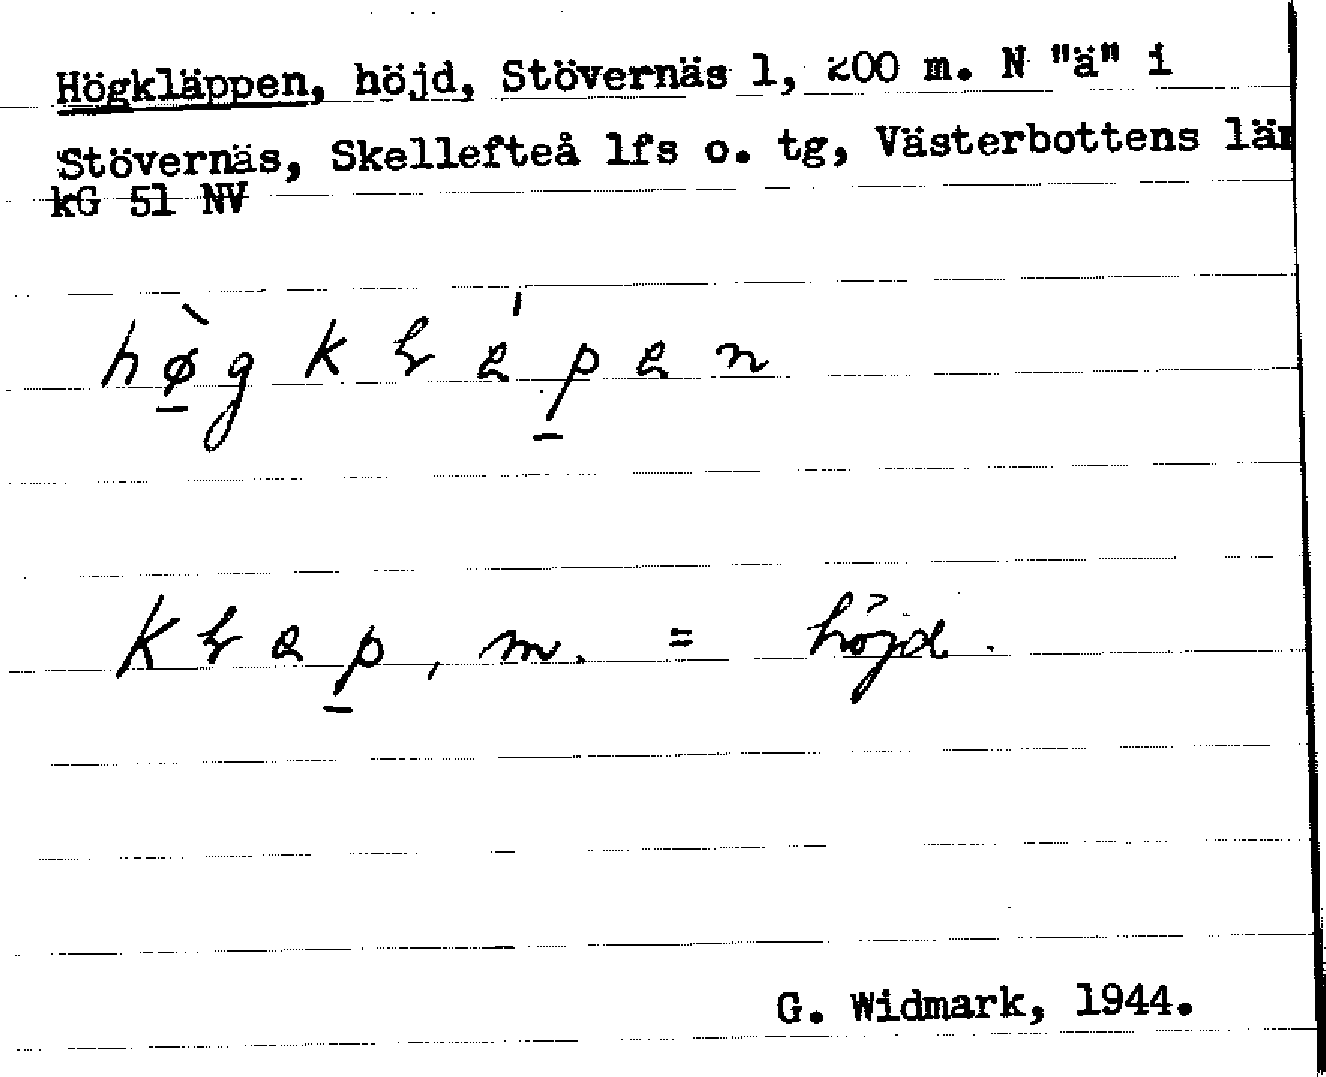 Högkläppen, höjd, Stövernäs 1, 200 m. N "ä" i
Stövernäs, Skellefteå lfs o. tg, Västerbottens län
kG 51 NV
hø̠̀gkɽáp̠an
kɽap̠, m. = höjd.
G. Widmark, 1944.